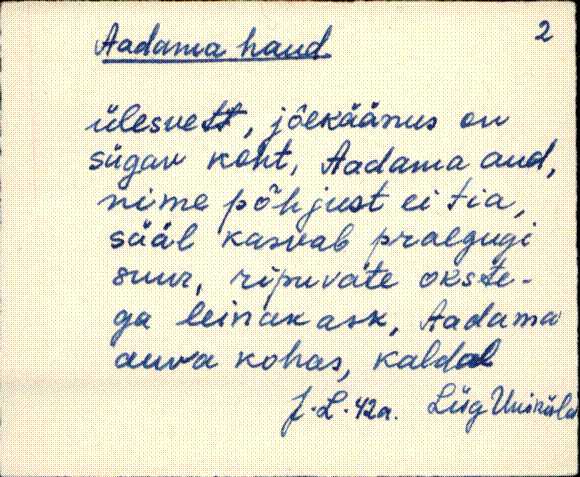 Aadama haud 2
ülesvett, jõekäänus on
sügav koht, Aadama aud,
nime põhjust ei tia,
sääl kasvab praegugi
suur, ripuvate okste-
ga leinakask, Aadama
auva kohas, kaldal
J.L. 42a. Lüg Uniküla